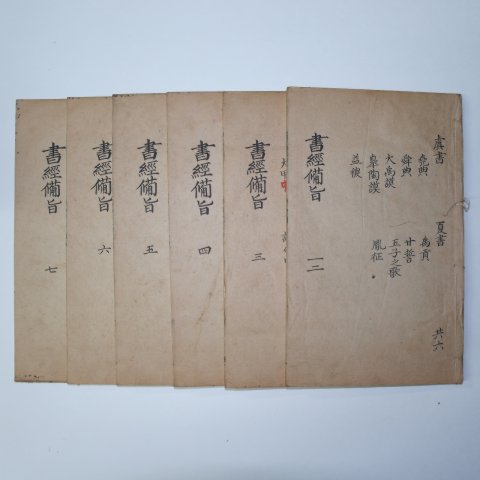 虞書
堯典
舜典
大禹謨
皐陶謨
益稷
夏書
禹貢
甘誓
五子之歌
胤征
共六
書經備旨
一二
書經備旨
三
書經備旨
四
書經備旨
五
書經備旨
六
書經備旨
七